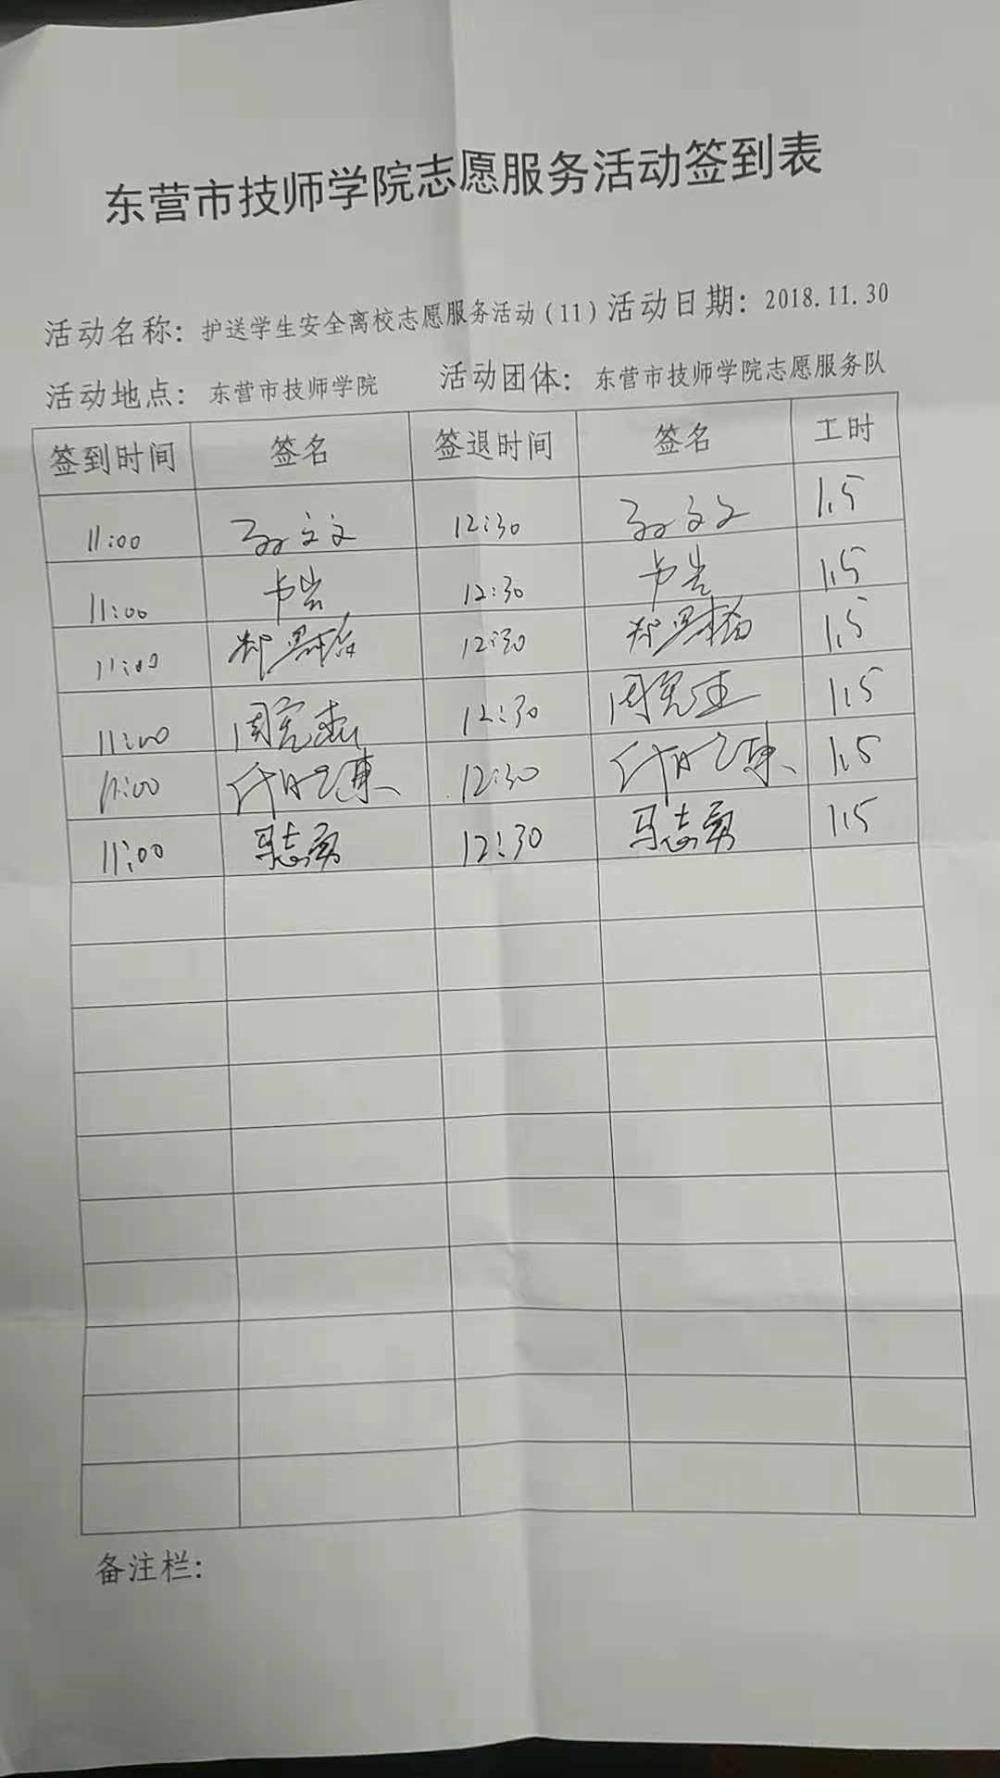 东营市技师学院志愿服务活动签到表
活动名称：护送学生安全离校志愿服务活动（11）活动日期：2018.11.30
活动地点：东营市技师学院 活动团体：东营市技师学院志愿服务队
签到时间 签名 签退时间 签名 工时
11:00 孙文文 12:30 孙文文 1.5
11:00 卞岩 12:30 卞岩 1.5
11:00 12:30 1.5
11:00 周宪杰 12:30 周宪杰 1.5
11:00 12:30 1.5
11:00 马志勇 12:30 马志勇 1.5
备注栏：